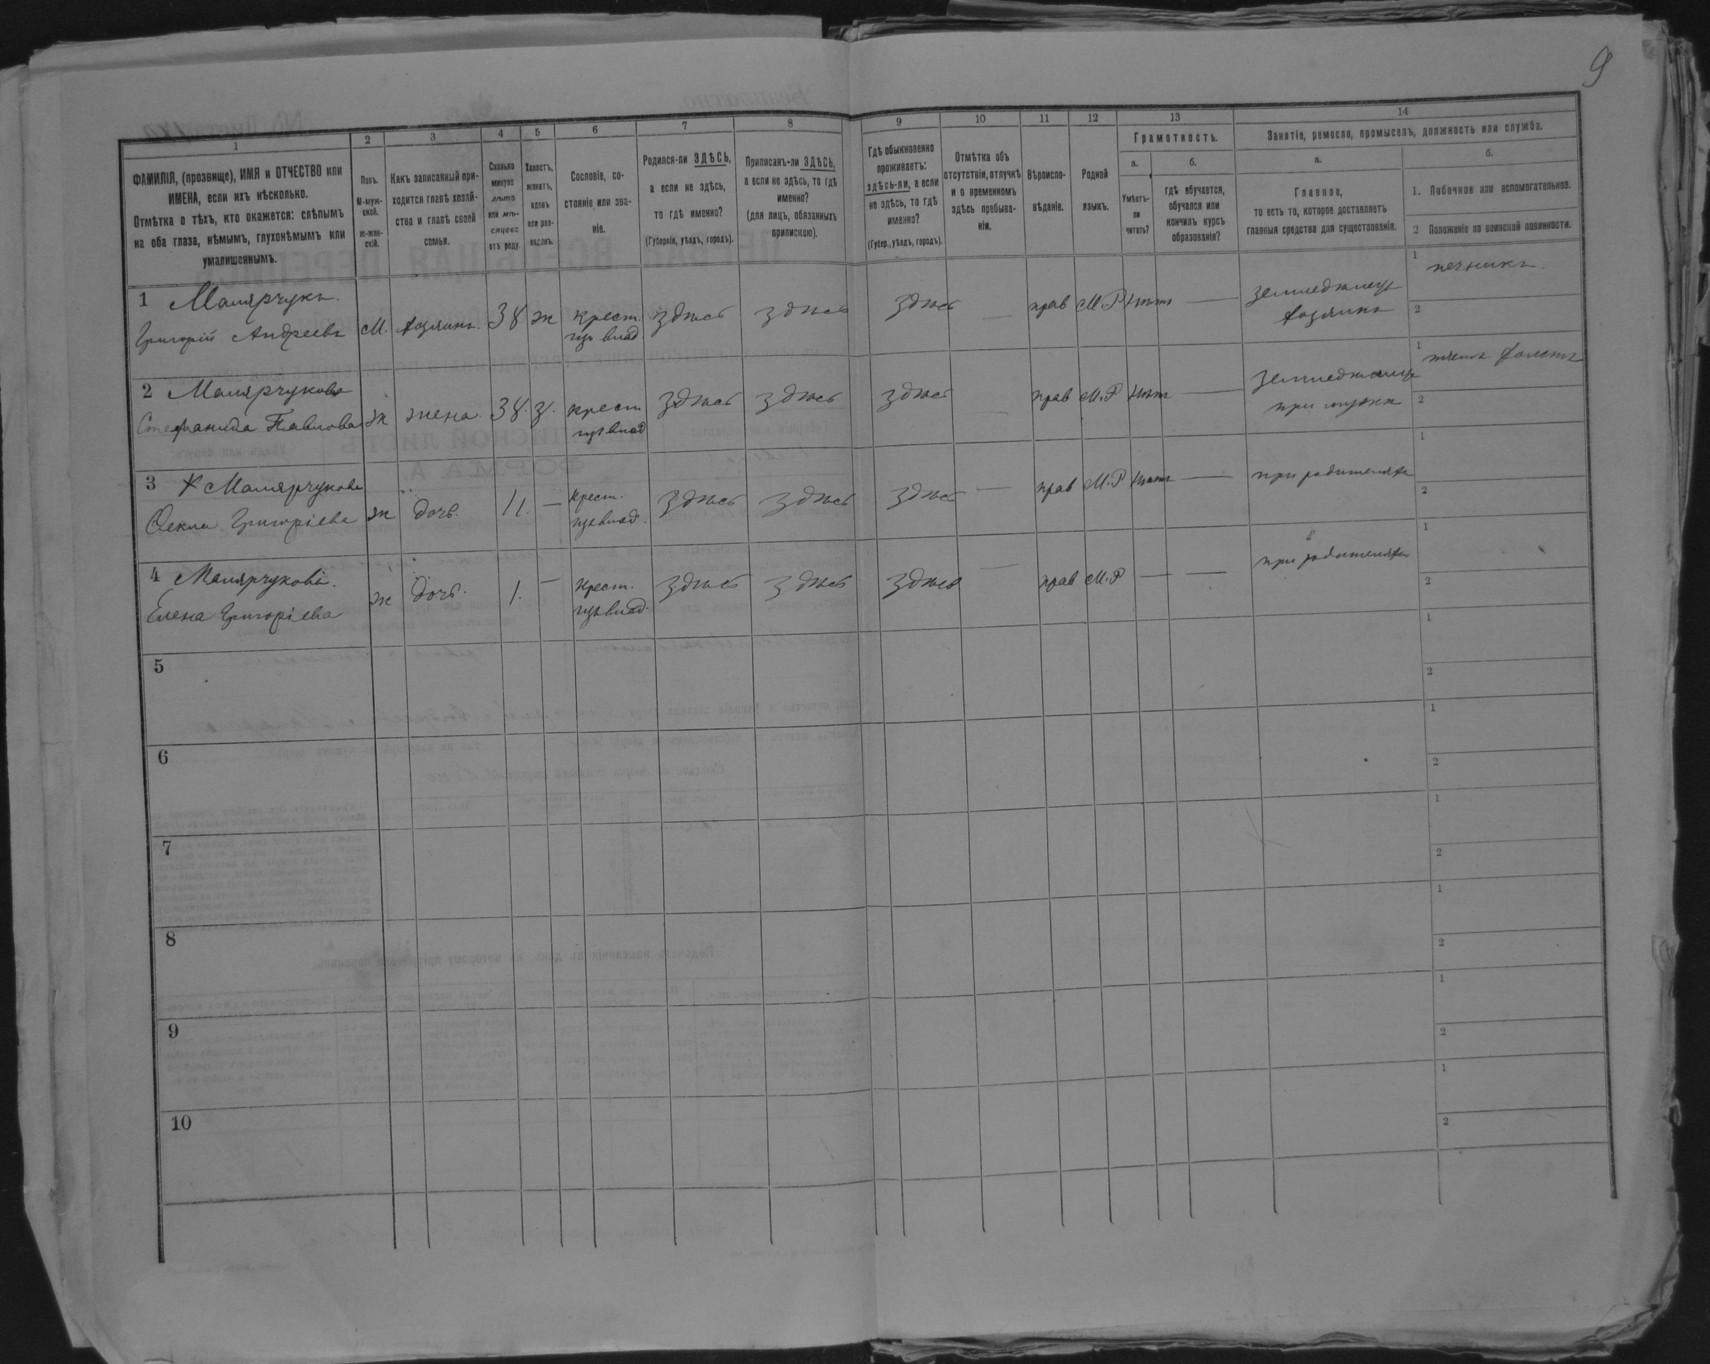 9
1 2 3 4 5 6 7 8 9 10 11 12 13 14
ФАМИЛІЯ, (прозвище), ИМЯ и ОТЧЕСТВО или
ИМЕНА, если ихъ нѣсколько.
Отмѣтка о тѣхъ, кто окажется: слѣпымъ
на оба глаза, нѣмымъ, глухонѣмымъ или
умалишеннымъ.
Полъ.
М-муж-
ской.
Ж-жен-
скій.
Какъ записанный при-
ходится главѣ хозяй-
ства и главѣ своей
семьи.
Сколько
минуло
лѣтъ
или мѣ-
сяцевъ
отъ роду.
Холостъ,
женатъ,
вдовъ
или раз-
веденъ.
Сословіе, со-
стояніе или зва-
ніе.
Родился-ли ЗДѢСЬ,
а если не здѣсь,
то гдѣ именно?
(Губернія, уѣздъ, городъ).
Приписанъ-ли ЗДѢСЬ,
а если не здѣсь, то гдѣ
именно?
(для лицъ, обязанныхъ
припискою).
Гдѣ обыкновенно
проживаетъ:
здѣсь-ли, а если
не здѣсь, то гдѣ
именно?
(Губер., уѣздъ, городъ).
Отмѣтка объ
отсутствіи, отлучкѣ
и о временномъ
здѣсь пребыва-
ніи.
Вѣроиспо-
вѣданіе.
Родной
языкъ.
Грамотность.
а.
Умѣетъ-
ли
читать?
б.
гдѣ обучается,
обучался или
кончилъ курсъ
образованія?
Занятіе, ремесло, промыселъ, должность или служба.
а.
Главное,
то есть то, которое доставляетъ
главныя средства для существованія.
б.
1. Побочное или вспомогательное.
2 Положеніе по воинской повинности.
1 Малярчукъ
Григорій Андреевъ М. хозяинъ 38 ж крест. здѣсь здѣсь здѣсь — прав М.Р нѣтъ — земледѣлецъ 1 печникъ
хозяинъ 2
2 Малярчукова
Стефанида Павлова ж жена 38. з. крест. здѣсь здѣсь здѣсь прав М.Р нѣтъ — 1
при мужѣ 2
3 Х Малярчукова
Ѳекла Григоріева ж дочь. 11. — крест. здѣсь здѣсь здѣсь — прав М.Р нѣтъ — при родителяхъ 1
2
4 Малярчукова.
Елена Григоріева ж дочь. 1. — крест. здѣсь здѣсь здѣсь — прав М.Р — — при родителяхъ 1
2
5 1
2
6 1
2
7 1
2
8 1
2
9 1
2
10 1
2